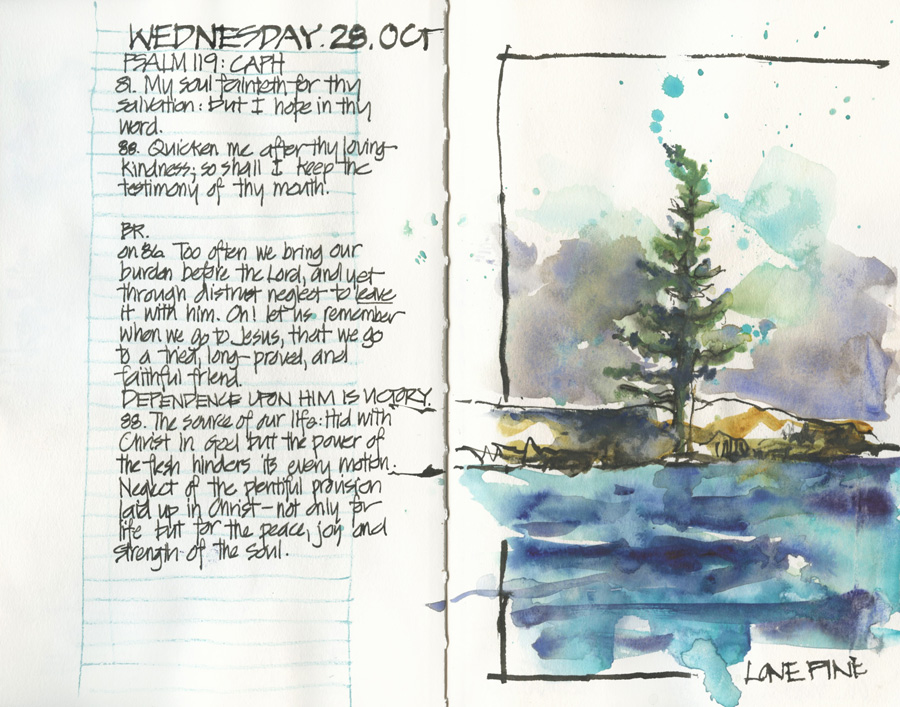 WEDNESDAY. 28. OCT
PSALM 119: CAPH
81. My soul fainteth for thy
salvation: but I hope in thy
word.
88. Quicken me after thy loving
kindness; so shall I keep the
testimony of thy mouth.
BR.
on 86. Too often we bring our
burden before the Lord, and yet
through distrust neglect to leave
it with him. Oh! let us remember
when we go to Jesus, that we go
to a tried, long-proved, and
faithful friend.
DEPENDENCE UPON HIM IS VICTORY.
88. The source of our life: Hid with
Christ in God but the power of
the flesh hinders its every motion.
Neglect of the plentiful provision
laid up in Christ - not only for
life but for the peace, joy and
strength of the soul.
LONE PINE